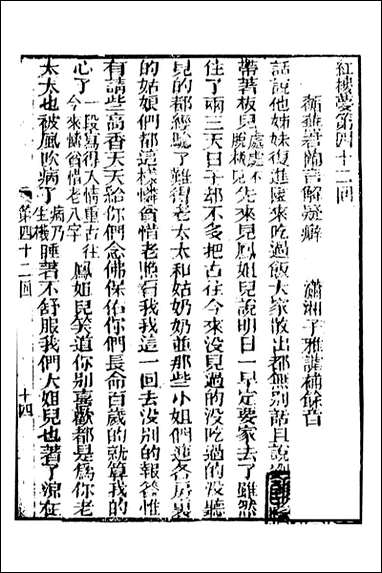 紅樓夢第四十二回
蘅蕪君蘭言解疑癖　瀟湘子雅謔補餘音
話說他姊妹復進園來吃過飯大家散出都無別話且說劉
帶著板兒處處不脫板兒先來見鳳姐兒說明日一早定要家去了雖然
住了兩三天日子却不多把古往今來沒見過的沒吃過的沒聽
見的都經驗了難得老太太和姑奶奶並那些小姐們連各房裏
的姑娘們都這樣憐貧惜老照看我我這一回去沒別的報答惟
有請些高香天天給你們念佛保佑你們長命百歲的就算我的
心了一段寫得人情重古往今來憐貧惜老八字鳳姐兒笑道你別喜歡都是爲你老
太太也被風吹病了病乃生機睡著不舒服我們大姐兒也著了涼在
第四十二回
十四